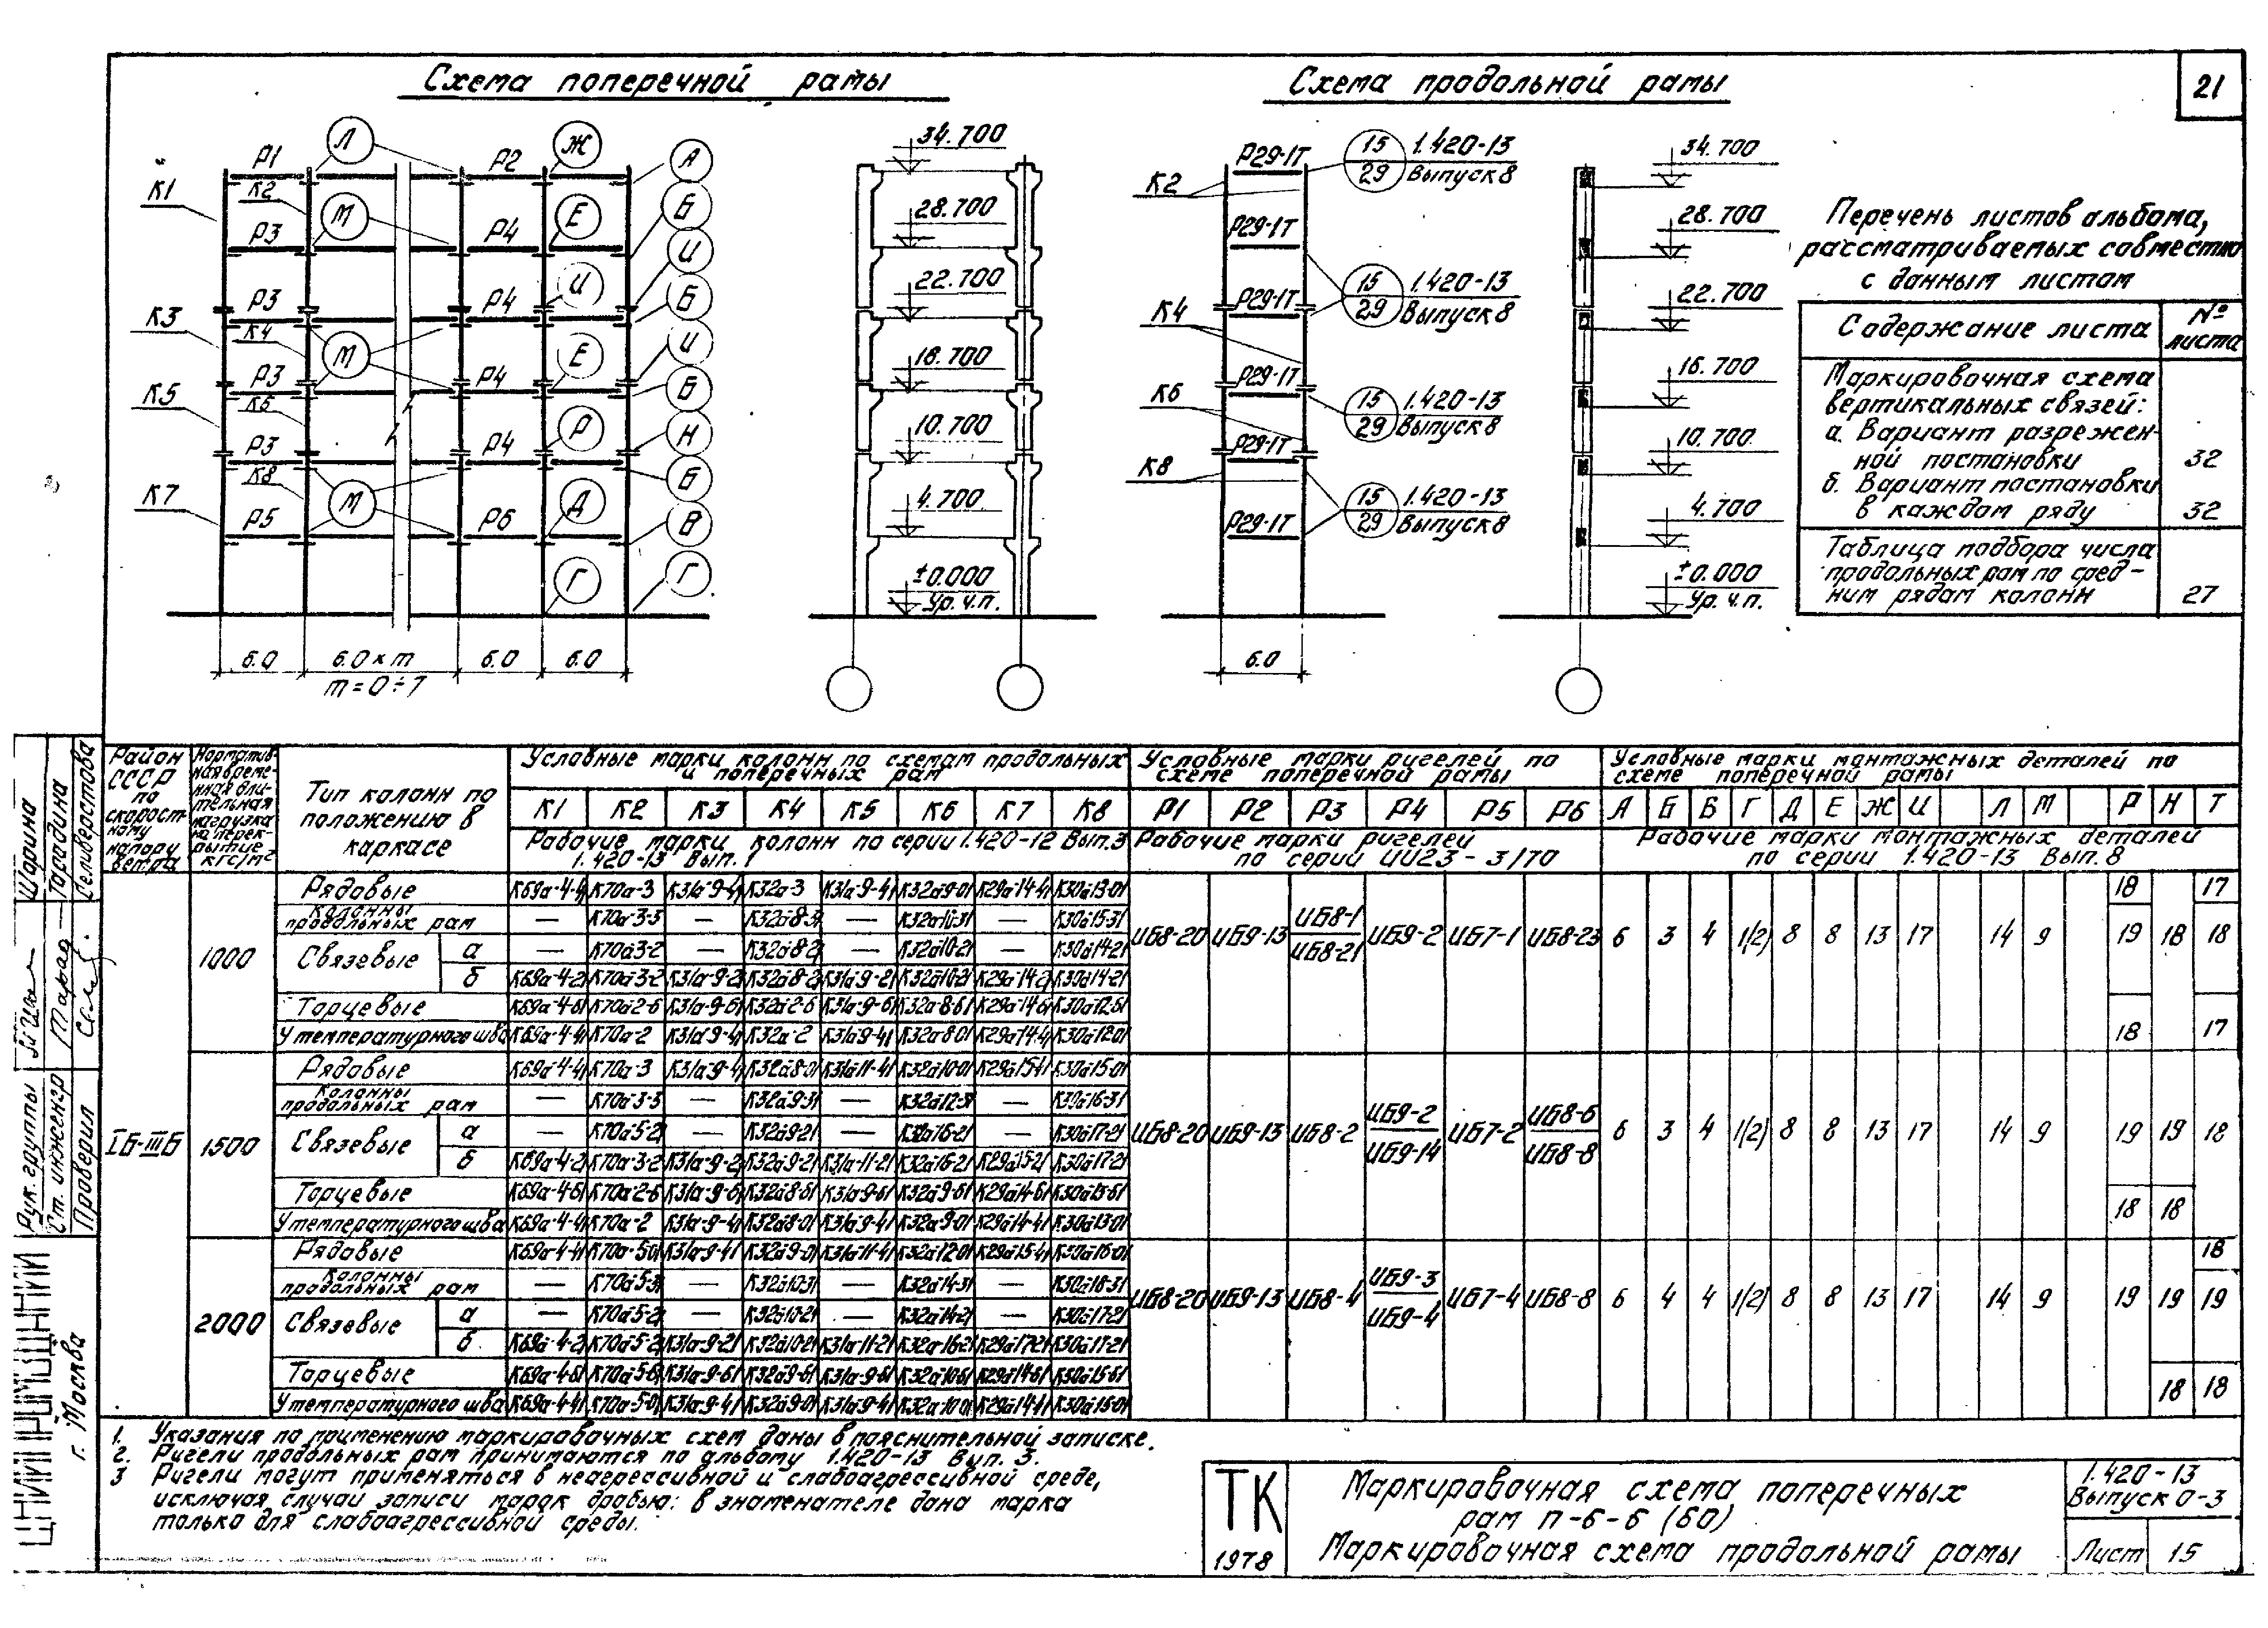 21
Схема поперечной рамы
Схема продольной рамы
Р1 Р2
К1 К2
Р3 Р4
Р3 Р4
К3 К4
Р3 Р4
К5 К6
Р3 Р4
К7 К8
Р5 Р6
Л Ж А
М Е Б
И И
Б
М Е И
Б
Р Н
Б
М Д В
Г Г
6.0 6.0×m 6.0 6.0
m=0÷7
34.700
28.700
22.700
16.700
10.700
4.700
±0.000
Ур. ч.п.
К2 Р29-1Т 15 1.420-13
29 Выпуск 8
Р29-1Т
15 1.420-13
К4 Р29-1Т 29 Выпуск 8
Р29-1Т
К6 15 1.420-13
29 Выпуск 8
К8 Р29-1Т
15 1.420-13
Р29-1Т 29 Выпуск 8
6.0
34.700
28.700
22.700
16.700
10.700
4.700
±0.000
Ур. ч.п.
Перечень листов альбома,
рассматриваемых совместно
с данным листом
Содержание листа № листа
Маркировочная схема
вертикальных связей:
а. Вариант разрежен-
ной постановки 32
б. Вариант постановки
в каждом ряду 32
Таблица подбора числа
продольных рам по сред-
ним рядам колонн 27
Район СССР по скорост- ному напору ветра
Нормативная временная длительная нагрузка на перекрытие кгс/м²
Тип колонн по положению в каркасе
Условные марки колонн по схемам продольных и поперечных рам
Условные марки ригелей по схеме поперечной рамы
Условные марки монтажных деталей по схеме поперечной рамы
К1 К2 К3 К4 К5 К6 К7 К8 Р1 Р2 Р3 Р4 Р5 Р6 А Б В Г Д Е Ж И Л М Р Н Т
Рабочие марки колонн по серии 1.420-12 Вып.3
1.420-13 Вып. 1
Рабочие марки ригелей
по серии ИИ23-3/70
Рабочие марки монтажных деталей
по серии 1.420-13 Вып. 8
IБ-IIIБ
1000
Рядовые К69а-4-41 К70а-3 К31а-9-41 К32а-3 К31а-9-41 К32а9-01 К29а-14-41 К30а13-01
Колонны продольных рам — К70а-3-3 — К32а8-31 — К32а10-31 — К30а15-31
Связевые а — К70а3-2 — К32а8-21 — К32а10-21 — К30а14-21
б К69а-4-2 К70а3-2 К31а-9-2 К32а8-2 К31а9-21 К32а10-21 К29а-14-2 К30а14-21
Торцевые К69а-4-61 К70а2-6 К31а-9-61 К32а2-6 К31а-9-61 К32а8-61 К29а-14-61 К30а12-61
У температурного шва К69а-4-41 К70а-2 К31а-9-41 К32а-2 К31а9-41 К32а8-01 К29а-14-41 К30а12-01
ИБ8-20 ИБ9-13 ИБ8-1 ИБ9-2 ИБ7-1 ИБ8-23
ИБ8-21
6 3 4 1(2) 8 8 13 17 14 9 19 18 18
18 17
18 17
1500
Рядовые К69а-4-41 К70а-3 К31а-9-41 К32а8-01 К31а11-41 К32а10-01 К29а15-41 К30а15-01
Колонны продольных рам — К70а-3-3 — К32а9-31 — К32а12-31 — К30а16-31
Связевые а — К70а5-21 — К32а9-21 — К32а16-21 — К30а17-21
б К69а-4-2 К70а-3-2 К31а-9-2 К32а9-21 К31а-11-21 К32а16-21 К29а15-21 К30а17-21
Торцевые К69а-4-61 К70а-2-6 К31а-9-61 К32а8-61 К31а9-61 К32а9-61 К29а14-61 К30а13-61
У температурного шва К69а-4-41 К70а-2 К31а-9-41 К32а8-01 К31а9-41 К32а9-01 К29а14-41 К30а13-01
ИБ8-20 ИБ9-13 ИБ8-2 ИБ9-2 ИБ7-2 ИБ8-6
ИБ9-14 ИБ8-8
6 3 4 1(2) 8 8 13 17 14 9 19 19 18
18 18
2000
Рядовые К69а-4-41 К70а-5-01 К31а-9-41 К32а9-01 К31а11-41 К32а12-01 К29а15-41 К30а16-01
Колонны продольных рам — К70а5-31 — К32а10-31 — К32а14-31 — К30а18-31
Связевые а — К70а5-21 — К32а10-21 — К32а14-21 — К30а17-21
б К69а-4-2 К70а5-2 К31а-9-21 К32а10-21 К31а-11-21 К32а16-21 К29а17-21 К30а17-21
Торцевые К69а-4-61 К70а5-61 К31а-9-61 К32а9-61 К31а-9-61 К32а10-61 К29а14-61 К30а15-61
У температурного шва К69а-4-41 К70а-5-01 К31а-9-41 К32а9-01 К31а9-41 К32а10-01 К29а14-41 К30а15-01
ИБ8-20 ИБ9-13 ИБ8-4 ИБ9-3 ИБ7-4 ИБ8-8
ИБ9-4
6 4 4 1(2) 8 8 13 17 14 9 19 19 19
18
18 18
1. Указания по применению маркировочных схем даны в пояснительной записке.
2. Ригели продольных рам принимаются по альбому 1.420-13 Вып. 3.
3 Ригели могут применяться в неагрессивной и слабоагрессивной среде,
исключая случаи записи марок дробью: в знаменателе дана марка
только для слабоагрессивной среды.
ТК
1978
Маркировочная схема поперечных
рам П-6-6 (60)
Маркировочная схема продольной рамы
1.420-13
Выпуск 0-3
Лист 15
ЦНИИПРОМЗДАНИЙ
г. Москва
Рук. группы Шорина
Ст. инженер Тарадина
Проверил Селиверстова